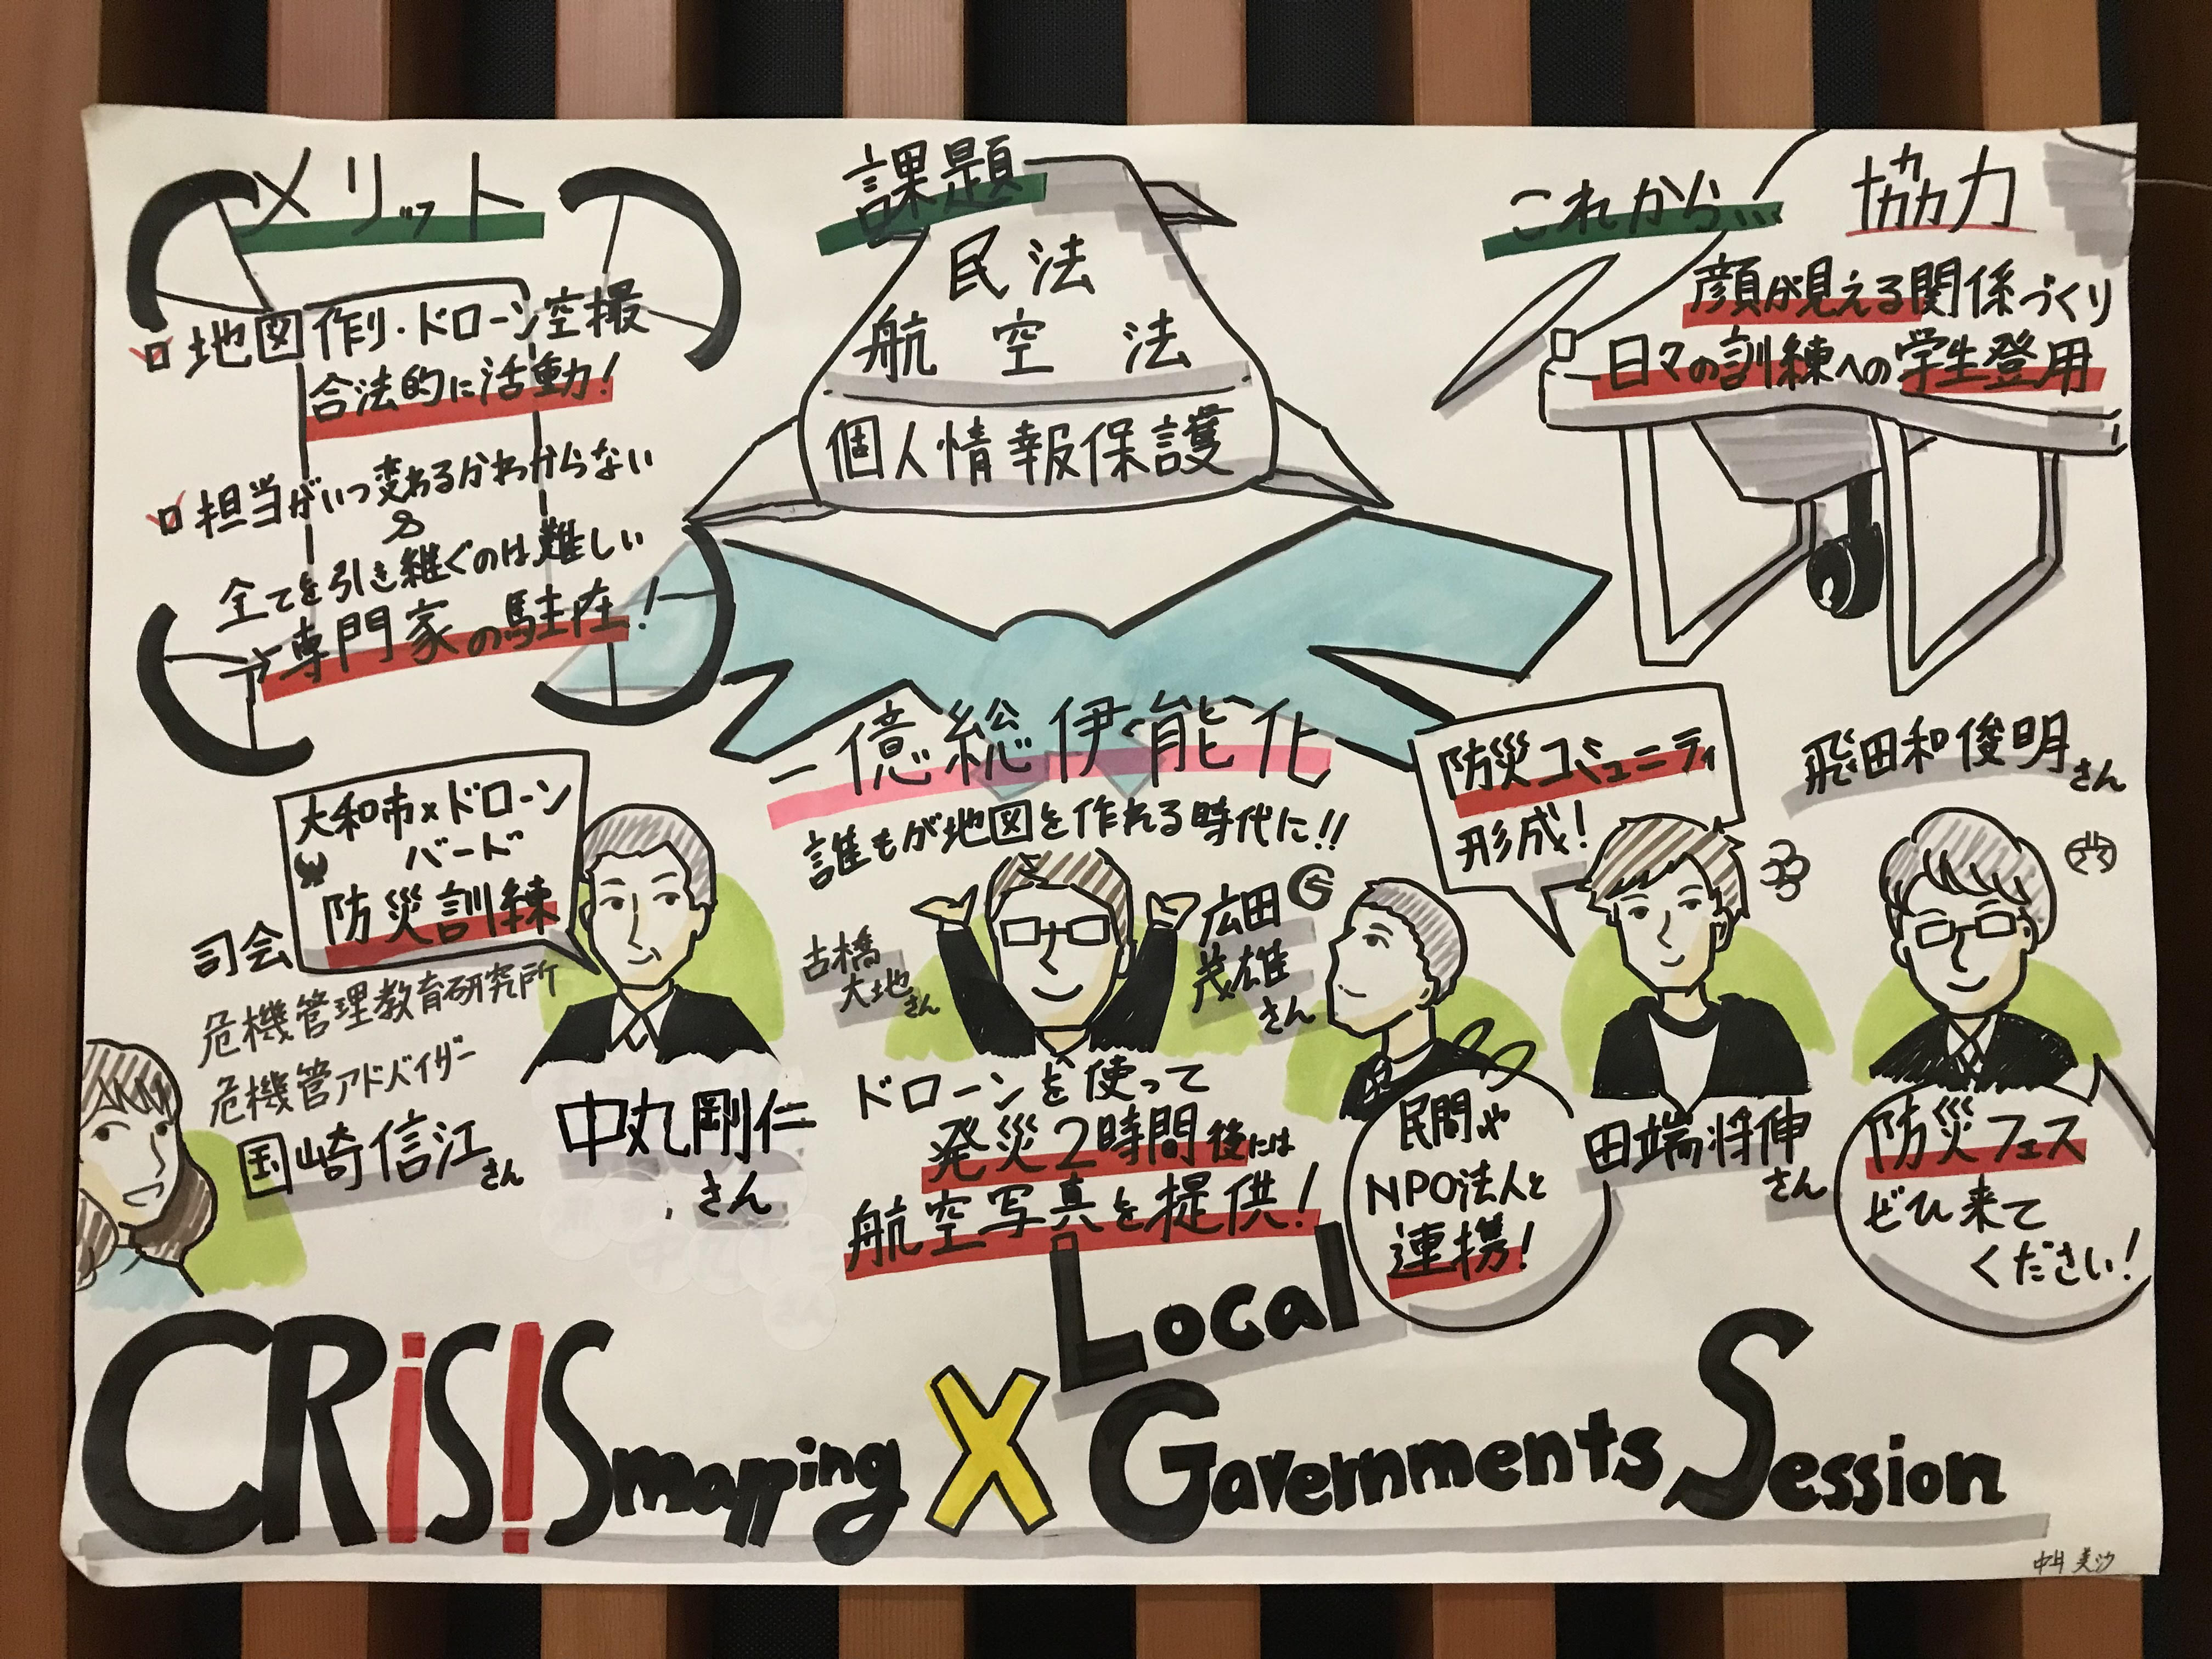 メリット
地図作り・ドローン空撮
合法的に活動!
担当がいつ変わるかわからない
&
全てを引き継ぐのは難しい
→専門家の駐在!
課題
民法
航空法
個人情報保護
これから...
協力
顔が見える関係づくり
日々の訓練への学生登用
一億総伊能化
誰もが地図を作れる時代に!!
大和市×ドローン
バード
防災訓練
司会
危機管理教育研究所
危機管アドバイザー
国崎信江さん
中丸剛仁
さん
古橋
大地さん
ドローンを使って
発災2時間後には
航空写真を提供!
広田
茂雄
さん
G
民間や
NPO法人と
連携!
防災コミュニティ
形成!
田端将伸
さん
飛田和俊明さん
防災フェス
ぜひ来て
ください!
CRiS!Smapping X Local
Gavernments Session
中井 美沙